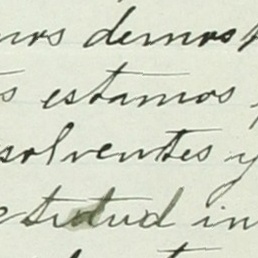 mos demos
s estamos
solventes y
etitud in